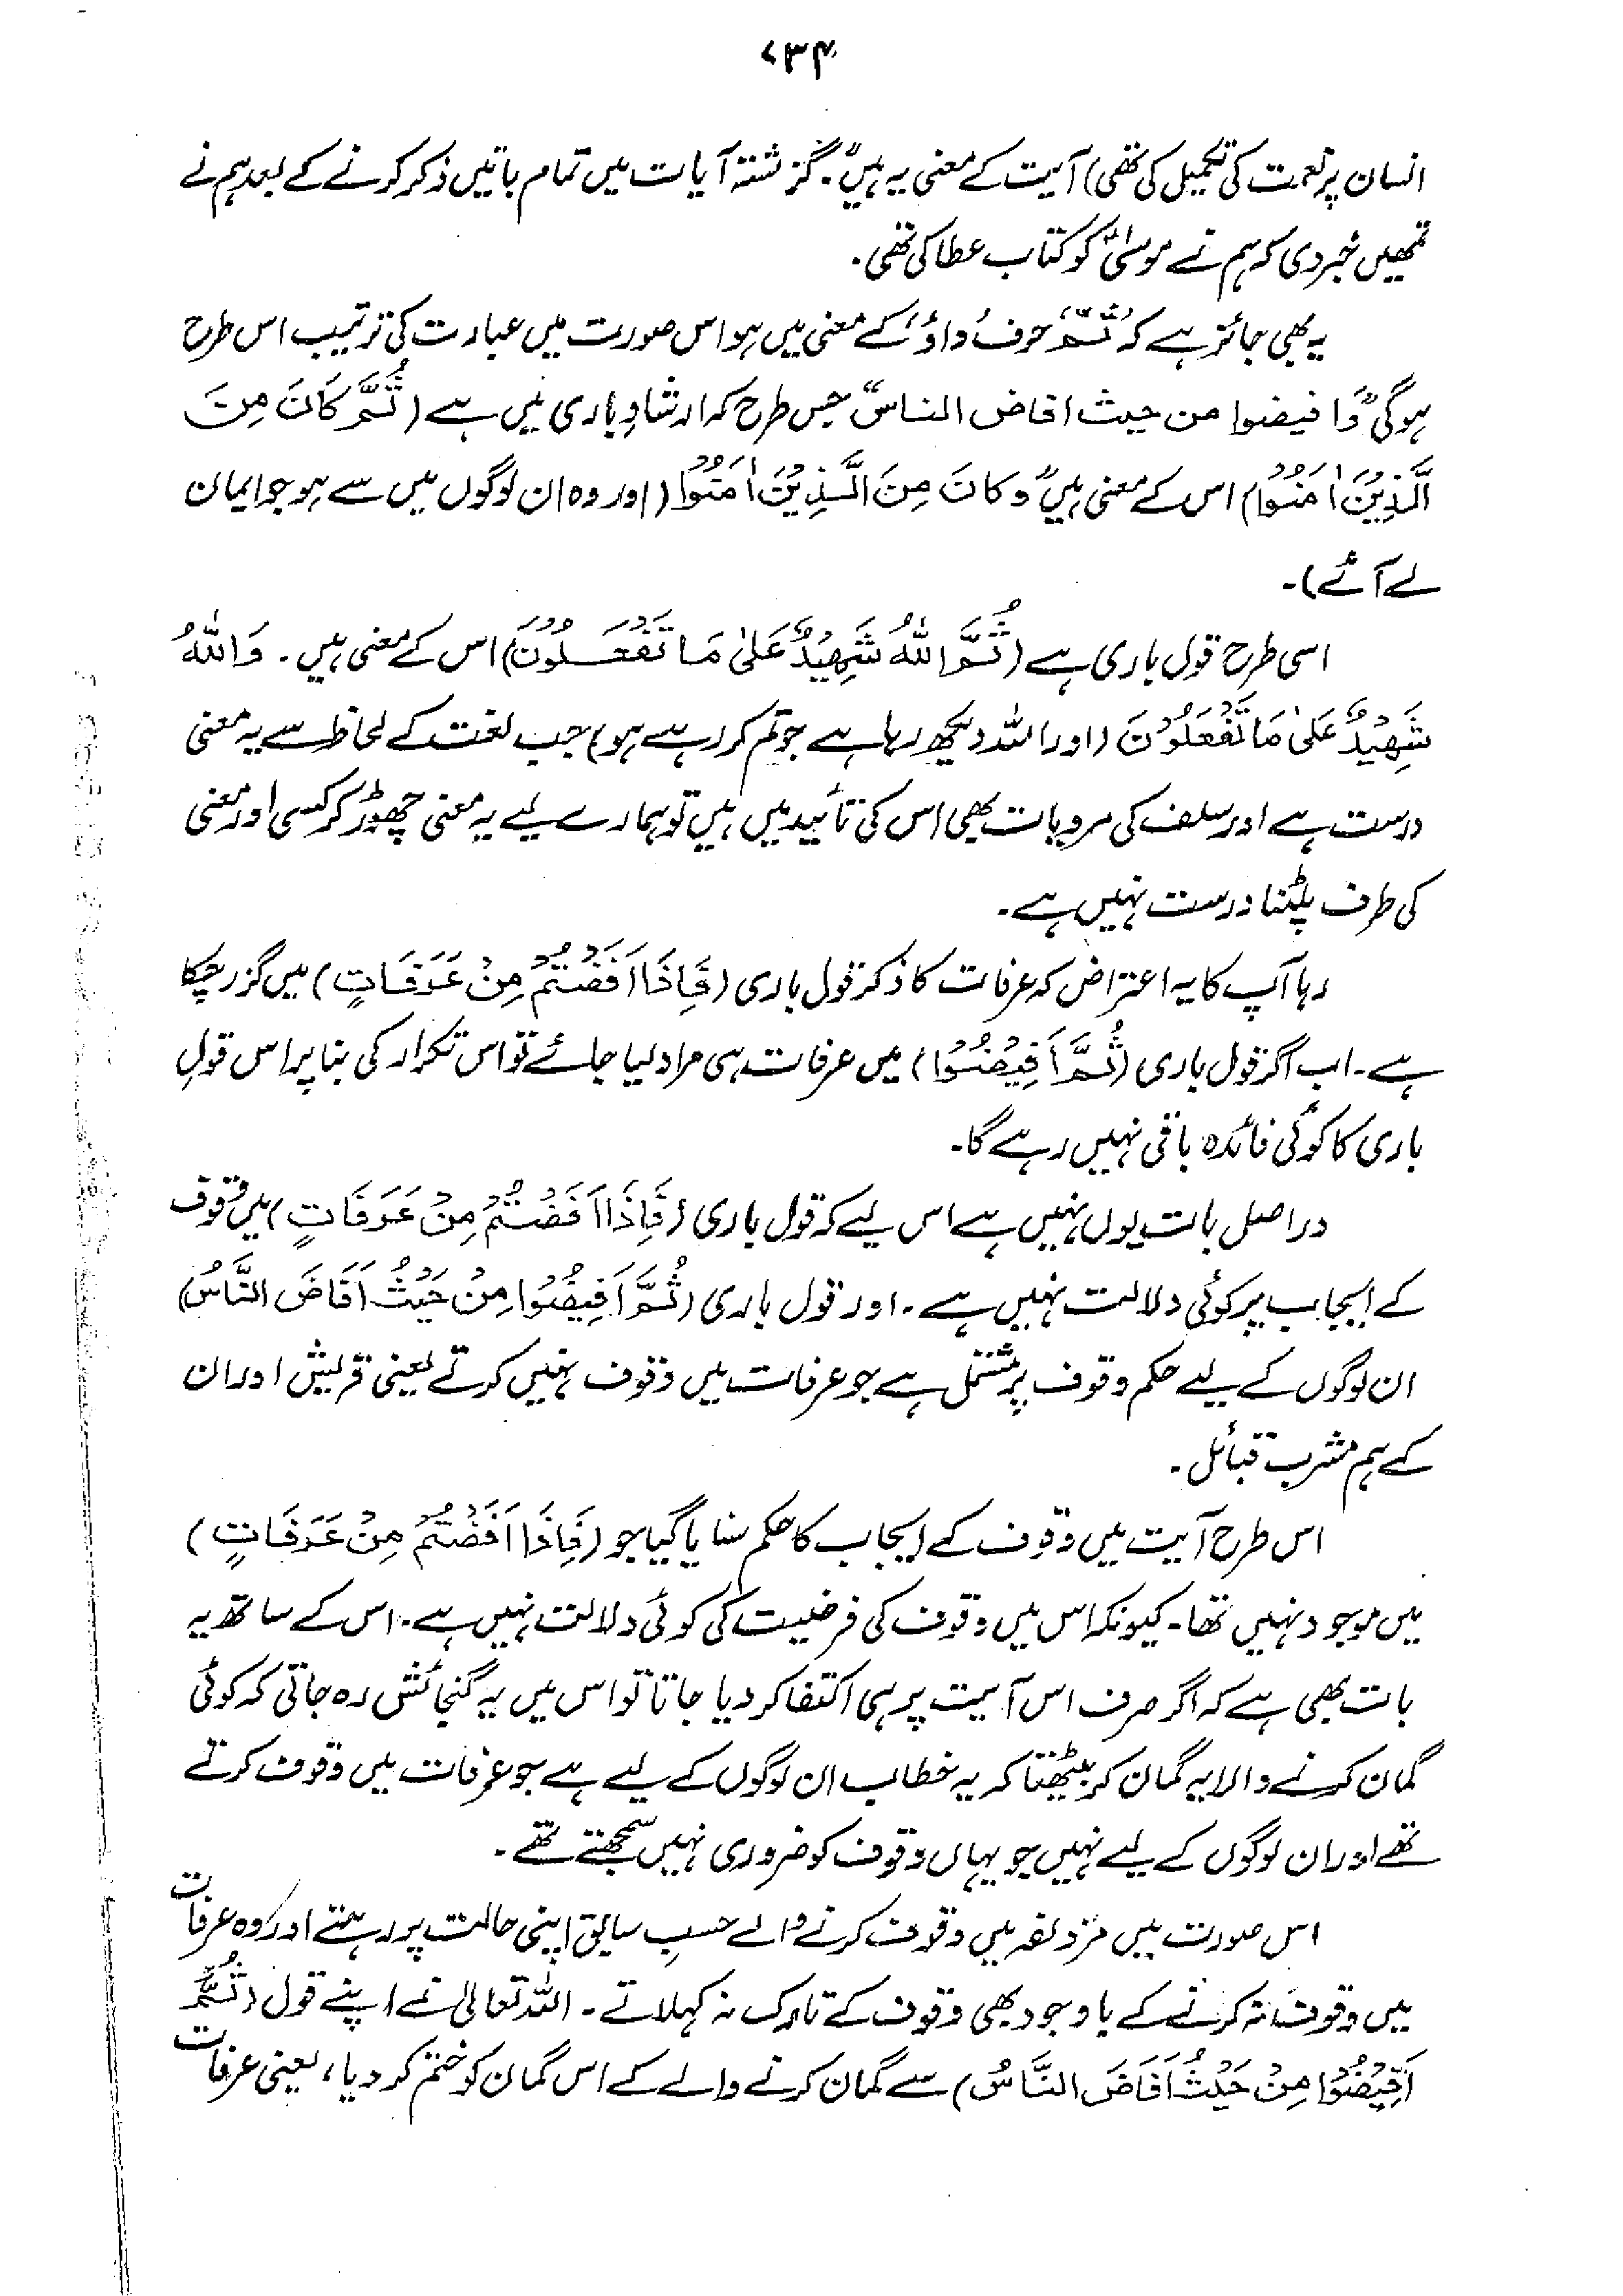 ۷۳۴
انسان پر نعمت کی تکمیل کی تھی) آیت کے معنی یہ ہیں"۔ گزشتہ آیات میں تمام باتیں ذکر کرنے کے بعد ہم نے
تمھیں خبر دی کہ ہم نے موسیٰؑ کو کتاب عطا کی تھی۔
یہ بھی جائز ہے کہ 'ثُمَّ' حرف 'واؤ' کے معنی میں ہو اس صورت میں عبارت کی ترتیب اس طرح
ہوگی "وَافیضوا من حیث افاض الناس" جس طرح کہ ارشادِ باری میں ہے (ثُمَّ کَانَ مِنَ
الَّذِیْنَ اٰمَنُوْا) اس کے معنی ہیں "وکانَ مِنَ الَّذِیْنَ اٰمَنُوْا (اور وہ ان لوگوں میں سے ہو جو ایمان
لے آئے)۔
اسی طرح قول باری ہے (ثُمَّ اللّٰہُ شَہِیْدٌ عَلیٰ مَا تَفْعَلُوْنَ) اس کے معنی ہیں۔ وَاللّٰہُ
شَہِیْدٌ عَلیٰ مَا تَفْعَلُوْنَ (اور اللہ دیکھ رہا ہے جو تم کر رہے ہو) جب لغت کے لحاظ سے یہ معنی
درست ہے اور سلف کی مرویات بھی اس کی تائید میں ہیں تو ہمارے لیے یہ معنی چھوڑ کر کسی اور معنی
کی طرف پلٹنا درست نہیں ہے۔
رہا آپ کا یہ اعتراض کہ عرفات کا ذکر قول باری (فَاِذَا اَفَضْتُمْ مِنْ عَرَفَاتٍ) میں گزر چکا
ہے۔ اب اگر قول باری (ثُمَّ اَفِیْضُوْا) میں عرفات ہی مراد لیا جائے تو اس تکرار کی بنا پر اس قولِ
باری کا کوئی فائدہ باقی نہیں رہے گا۔
دراصل بات یوں نہیں ہے اس لیے کہ قول باری (فَاِذَا اَفَضْتُمْ مِنْ عَرَفَاتٍ) میں وقوف
کے ایجاب پر کوئی دلالت نہیں ہے۔ اور قول باری (ثُمَّ اَفِیْضُوْا مِنْ حَیْثُ اَفَاضَ النَّاسُ)
ان لوگوں کے لیے حکم وقوف پر مشتمل ہے جو عرفات میں وقوف نہیں کرتے یعنی قریش اور ان
کے ہم مشرب قبائل۔
اس طرح آیت میں وقوف کے ایجاب کا حکم سنایا گیا جو (فَاِذَا اَفَضْتُمْ مِنْ عَرَفَاتٍ)
میں موجود نہیں تھا۔ کیونکہ اس میں وقوف کی فرضیت کی کوئی دلالت نہیں ہے۔ اس کے ساتھ یہ
بات بھی ہے کہ اگر صرف اس آیت پر ہی اکتفا کر دیا جاتا تو اس میں یہ گنجائش رہ جاتی کہ کوئی
گمان کرنے والا یہ گمان کر بیٹھتا کہ یہ خطاب ان لوگوں کے لیے ہے جو عرفات میں وقوف کرتے
تھے اور ان لوگوں کے لیے نہیں جو یہاں وقوف کو ضروری نہیں سمجھتے تھے۔
اس صورت میں مزدلفہ میں وقوف کرنے والے حسبِ سابق اپنی حالت پر رہتے اور وہ عرفات
میں وقوف نہ کرنے کے باوجود بھی وقوف کے تارک نہ کہلاتے۔ اللہ تعالیٰ نے اپنے قول (ثُمَّ
اَفِیْضُوْا مِنْ حَیْثُ اَفَاضَ النَّاسُ) سے گمان کرنے والے کے اس گمان کو ختم کر دیا، یعنی عرفات